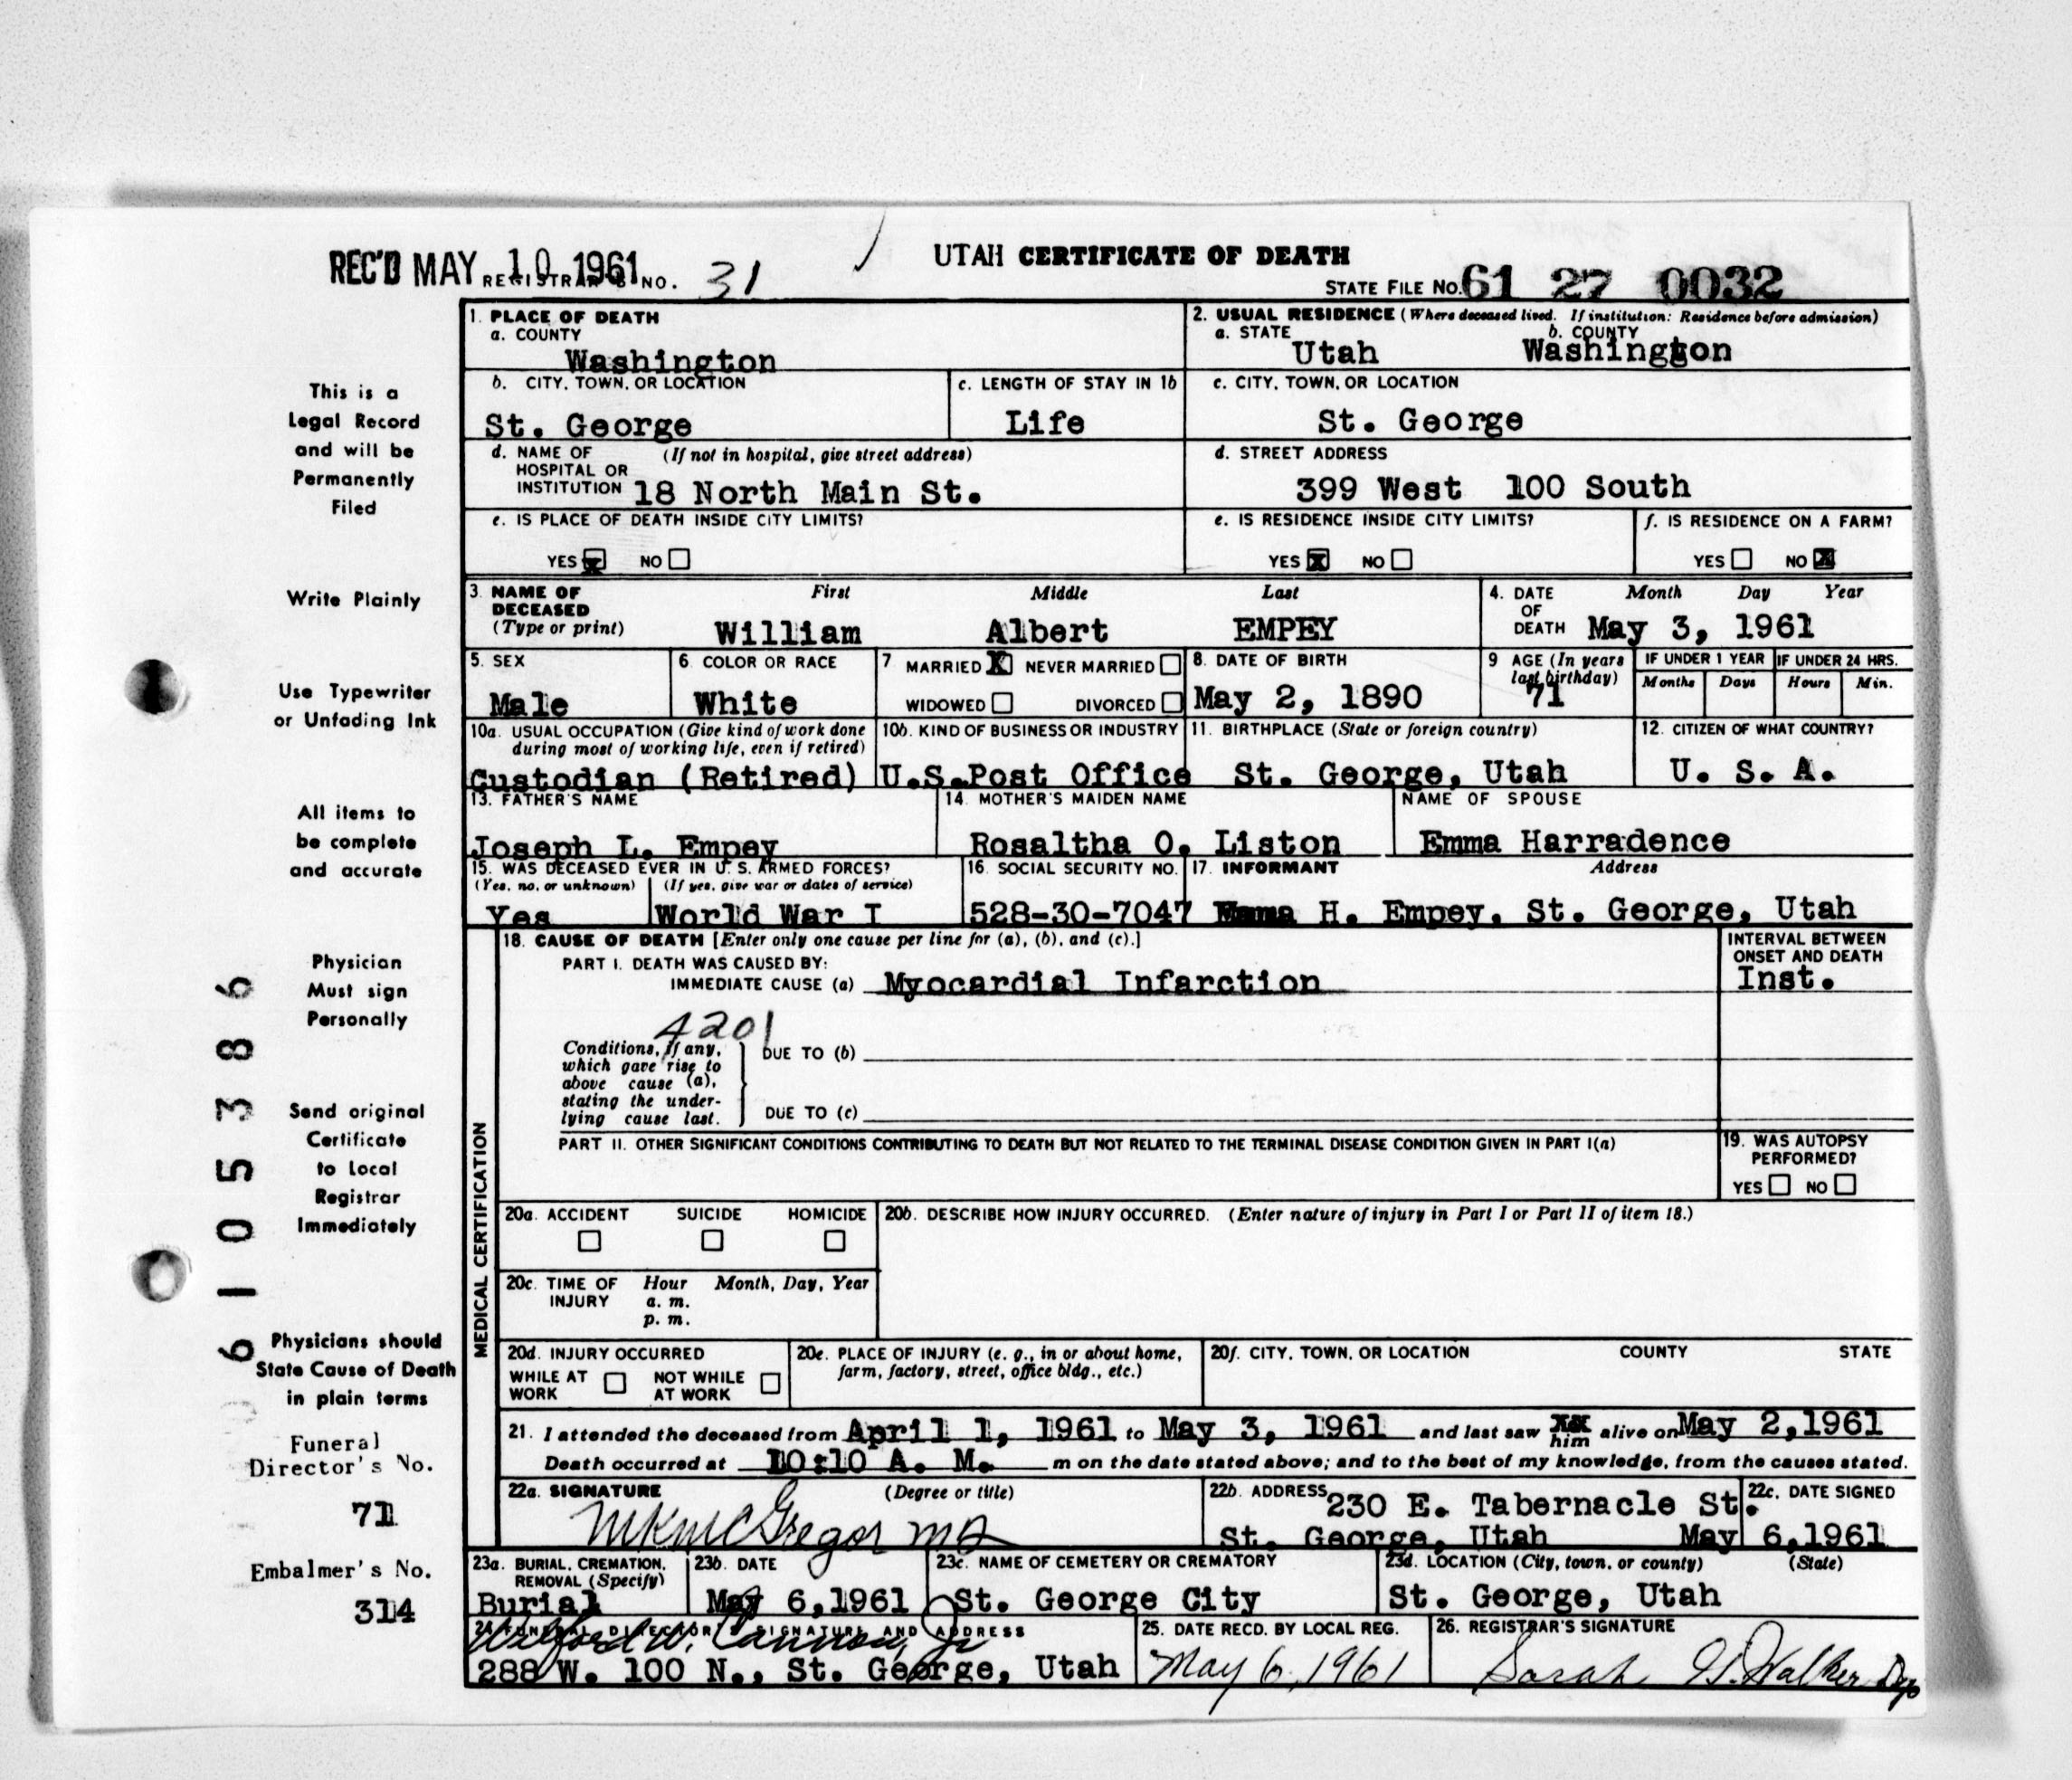 REC'D MAY 10 1961 REGISTRAR'S NO. 31
UTAH CERTIFICATE OF DEATH
STATE FILE NO. 61 27 0032
This is a
Legal Record
and will be
Permanently
Filed
Write Plainly
Use Typewriter
or Unfading Ink
All items to
be complete
and accurate
Physician
Must sign
Personally
Send original
Certificate
to Local
Registrar
Immediately
Physicians should
State Cause of Death
in plain terms
Funeral
Director's No.
71
Embalmer's No.
314
6105386
1. PLACE OF DEATH
a. COUNTY
Washington
2. USUAL RESIDENCE (Where deceased lived. If institution: Residence before admission)
a. STATE b. COUNTY
Utah Washington
b. CITY, TOWN, OR LOCATION
St. George
c. LENGTH OF STAY IN 1b
Life
c. CITY, TOWN, OR LOCATION
St. George
d. NAME OF (If not in hospital, give street address)
HOSPITAL OR
INSTITUTION 18 North Main St.
d. STREET ADDRESS
399 West 100 South
e. IS PLACE OF DEATH INSIDE CITY LIMITS?
YES X NO
e. IS RESIDENCE INSIDE CITY LIMITS?
YES X NO
f. IS RESIDENCE ON A FARM?
YES NO X
3. NAME OF First Middle Last
DECEASED
(Type or print) William Albert EMPEY
4. DATE Month Day Year
OF
DEATH May 3, 1961
5. SEX
Male
6. COLOR OR RACE
White
7 MARRIED X NEVER MARRIED
WIDOWED DIVORCED
8. DATE OF BIRTH
May 2, 1890
9 AGE (In years
last birthday)
71
IF UNDER 1 YEAR IF UNDER 24 HRS.
Months Days Hours Min.
10a. USUAL OCCUPATION (Give kind of work done
during most of working life, even if retired)
Custodian (Retired)
10b. KIND OF BUSINESS OR INDUSTRY
U.S.Post Office
11. BIRTHPLACE (State or foreign country)
St. George, Utah
12. CITIZEN OF WHAT COUNTRY?
U. S. A.
13. FATHER'S NAME
Joseph L. Empey
14. MOTHER'S MAIDEN NAME
Rosaltha O. Liston
NAME OF SPOUSE
Emma Harradence
15. WAS DECEASED EVER IN U. S. ARMED FORCES?
(Yes, no, or unknown) (If yes, give war or dates of service)
Yes World War I
16. SOCIAL SECURITY NO.
528-30-7047
17. INFORMANT Address
Emma H. Empey, St. George, Utah
MEDICAL CERTIFICATION
18. CAUSE OF DEATH [Enter only one cause per line for (a), (b), and (c).]
PART I. DEATH WAS CAUSED BY:
IMMEDIATE CAUSE (a) Myocardial Infarction
INTERVAL BETWEEN
ONSET AND DEATH
Inst.
4201
Conditions, if any,
which gave rise to
above cause (a),
stating the under-
lying cause last.
DUE TO (b)
DUE TO (c)
PART II. OTHER SIGNIFICANT CONDITIONS CONTRIBUTING TO DEATH BUT NOT RELATED TO THE TERMINAL DISEASE CONDITION GIVEN IN PART I(a)
19. WAS AUTOPSY
PERFORMED?
YES NO
20a. ACCIDENT SUICIDE HOMICIDE
20b. DESCRIBE HOW INJURY OCCURRED. (Enter nature of injury in Part I or Part II of item 18.)
20c. TIME OF Hour Month, Day, Year
INJURY a. m.
p. m.
20d. INJURY OCCURRED
WHILE AT NOT WHILE
WORK AT WORK
20e. PLACE OF INJURY (e. g., in or about home,
farm, factory, street, office bldg., etc.)
20f. CITY, TOWN, OR LOCATION COUNTY STATE
21. I attended the deceased from April 1, 1961 to May 3, 1961 and last saw him alive on May 2,1961
Death occurred at 10:10 A. M. m on the date stated above; and to the best of my knowledge, from the causes stated.
22a. SIGNATURE (Degree or title)
MKMcGregor MD
22b. ADDRESS
230 E. Tabernacle St.
St. George, Utah
22c. DATE SIGNED
May 6,1961
23a. BURIAL, CREMATION,
REMOVAL (Specify)
Burial
23b. DATE
May 6,1961
23c. NAME OF CEMETERY OR CREMATORY
St. George City
23d. LOCATION (City, town, or county) (State)
St. George, Utah
24 FUNERAL DIRECTOR'S SIGNATURE AND ADDRESS
Wilford W. Cannon, Jr
288 W. 100 N., St. George, Utah
25. DATE RECD. BY LOCAL REG.
May 6, 1961
26. REGISTRAR'S SIGNATURE
Sarah G. Walker Dep